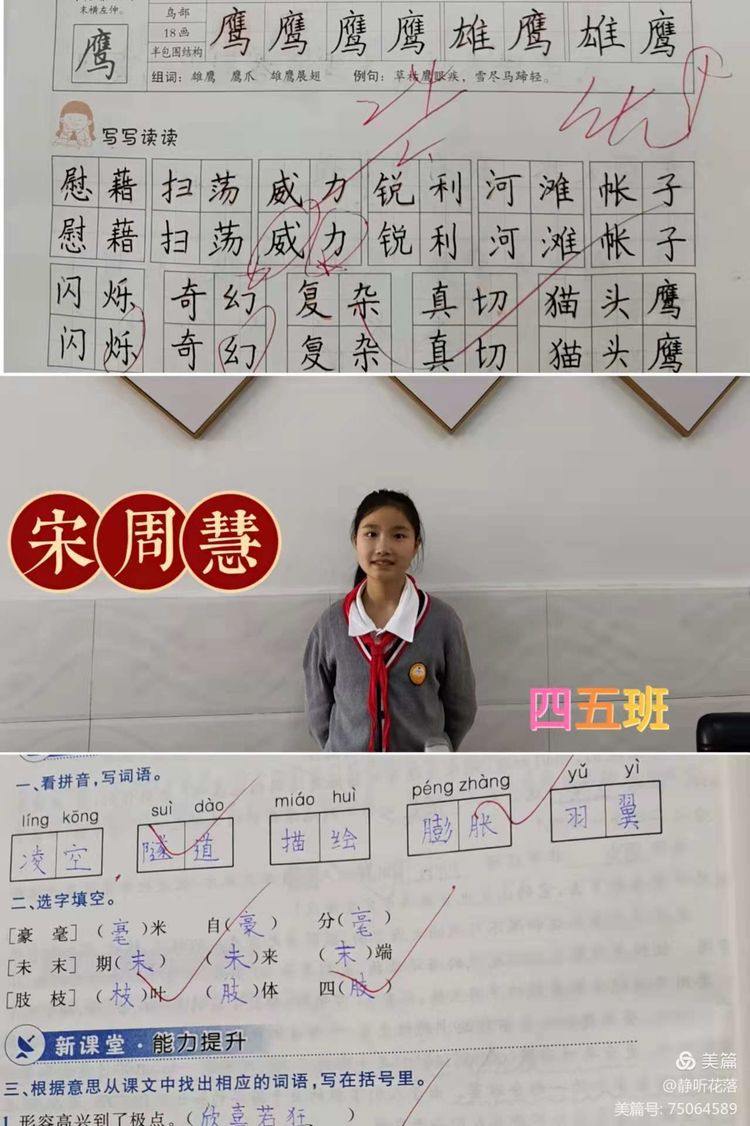 末横左伸。
鸟部
18画
半包围结构
鹰
鹰 鹰 鹰 鹰 雄 鹰 雄 鹰
组词：雄鹰 鹰爪 雄鹰展翅 例句：草枯鹰眼疾，雪尽马蹄轻。
写写读读
慰藉 扫荡 威力 锐利 河滩 帐子
慰藉 扫荡 威力 锐利 河滩 帐子
闪烁 奇幻 复杂 真切 猫头鹰
闪烁 奇幻 复杂 真切 猫头鹰
宋周慧
四五班
一、看拼音，写词语。
líng kōng suì dào miáo huì péng zhàng yǔ yì
凌空 隧道 描绘 膨胀 羽翼
二、选字填空。
[豪 毫] （毫）米 自（豪） 分（毫）
[未 末] 期（末） （未）来 （末）端
[肢 枝] （枝）叶 （肢）体 四（肢）
新课堂·能力提升
三、根据意思从课文中找出相应的词语，写在括号里。
1.形容高兴到了极点。（欣喜若狂）
美篇
@静听花落
美篇号: 75064589